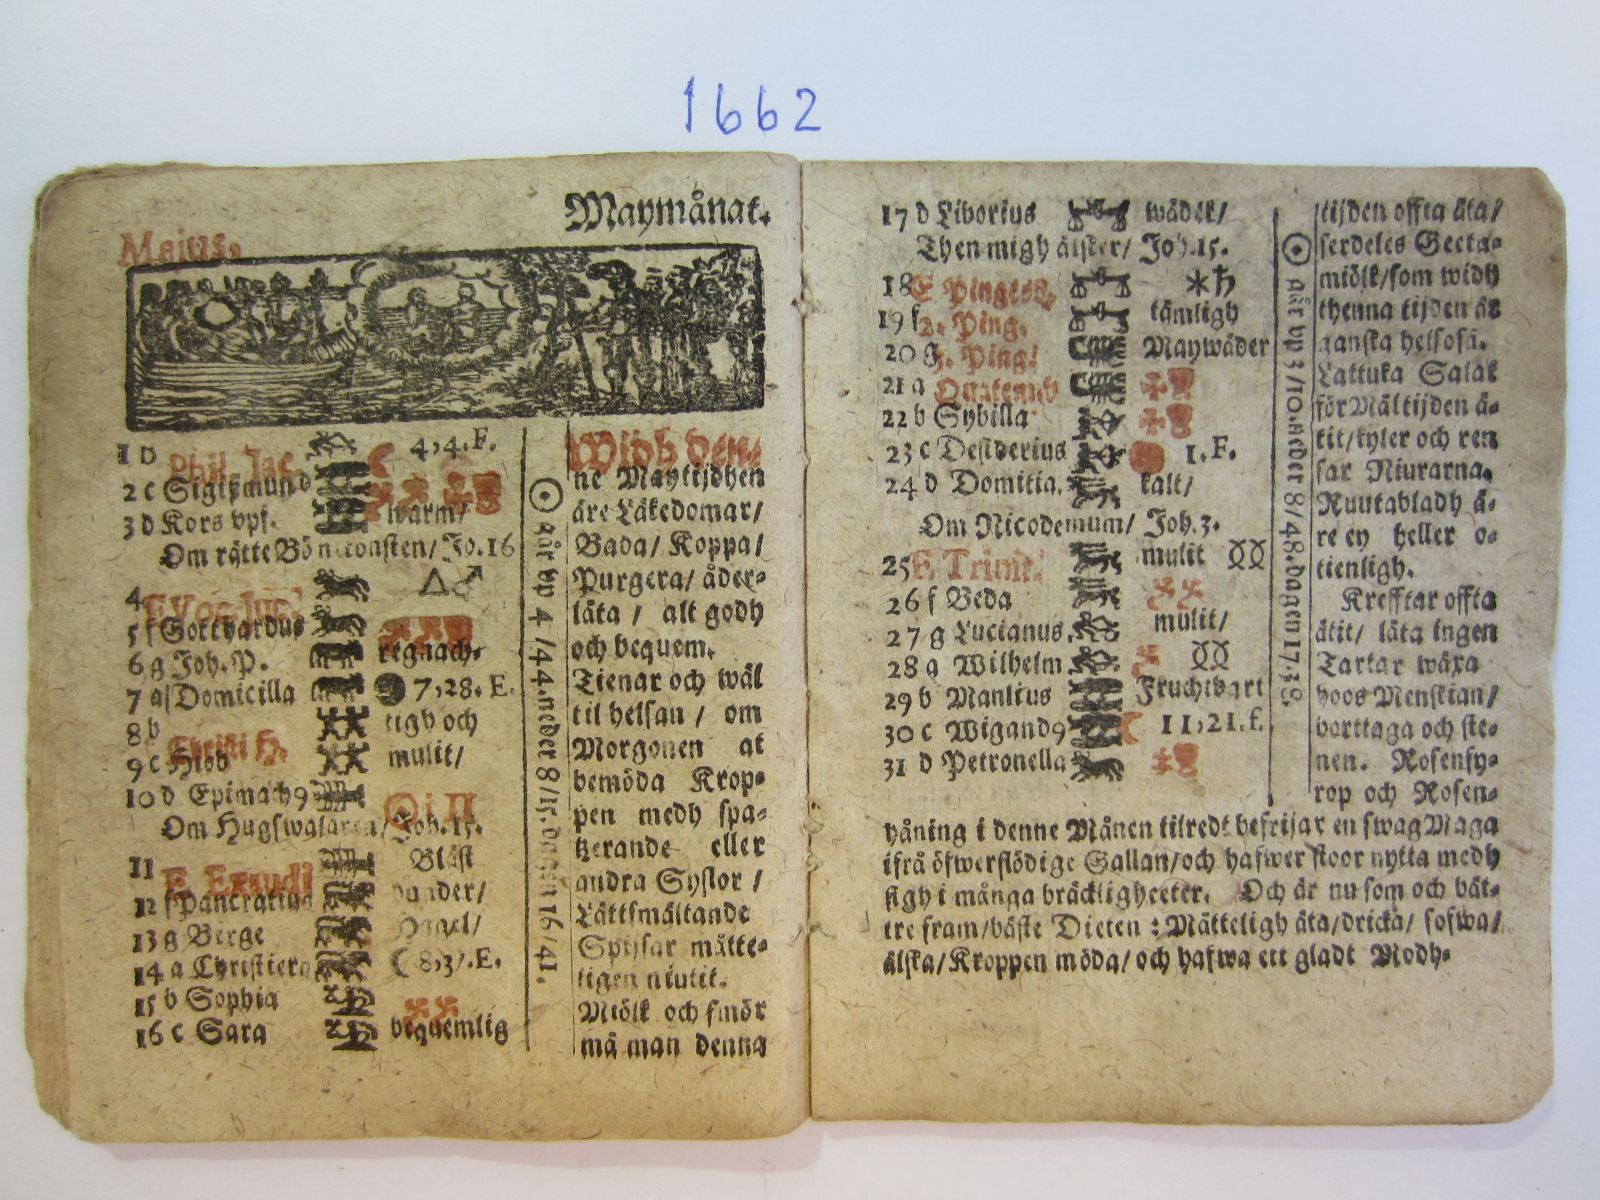 1662
Maymånat.
Majus,
1 b Phil. Jac. ☾ 4,4.F.
2 c Sigismund
3 d Kors vpf. warm/
Om rätte Bönekonsten/ Jo.16
4 E Voc. Juc. △♂
5 f Gotthardus
6 g Joh. P. regnach-
7 a Domicilla ● 7,28. E.
8 b Christi H. tigh och
9 c Hiob mulit/
10 d Epimach9 ☉ i ♊
Om Hugswalaren/ Joh.15.
11 E Exaudi Bläst
12 f Pancratius dunder/
13 g Birge Hagel/
14 a Christiern ☾ 8,37.E.
15 b Sophia
16 c Sara bequemlig
☉ går vp 4/44.neder 8/15.dagen 16/41.
Widh den-
ne Maytijdhen
äre Läkedomar/
Bada/ Koppa/
Purgera/ åder-
låta / alt godh
och bequem.
Tienar och wäl
til helsan / om
Morgonen at
bemöda Krop-
pen medh spa-
tzerande eller
andra Syslor /
Lättsmältande
Spijsar måtte-
ligen niutit.
Miölk och smör
må man denna
17 d Liborius wäder/
Then migh älsker/ Joh.15.
18 E Pingest. ✶♄
19 f 2. Ping. tämligh
20 g 3. Ping. Maywäder
21 a Quatemb
22 b Sybilla
23 c Desiderius 1.F.
24 d Domitia. kalt/
Om Nicodemum/ Joh.3.
25 E Trinit. mulit
26 f Beda
27 g Lucianus. mulit/
28 a Wilhelm.
29 b Manlius Fruchtbart
30 c Wigand9 ☾ 11,21.f.
31 d Petronella
☉ går vp 3/10.neder 8/48.dagen 17/38.
tijden offta äta/
serdeles Geeta-
miölk/som widh
thenna tijden är
ganska helsosä.
Lattuka Salat
för Måltijden ä-
tit/kyler och ren
sar Niurarna.
Ruutabladh ä-
re ey heller o-
tienligh.
Krefftar offta
ätit/ låta ingen
Tartar wäxa
hoos Menskian/
borttaga och ste-
nen. Rosensy-
rop och Rosen-
håning i denne Månen tilredt befrijar en swag Maga
ifrå öfwerflödige Gallan/och hafwer stoor nytta medh
sigh i många bräckligheeter. Och är nu som och bät-
tre fram/bäste Dieten : Mätteligh äta/dricka/ sofwa/
älska/Kroppen möda/ och hafwa ett gladt Modh-